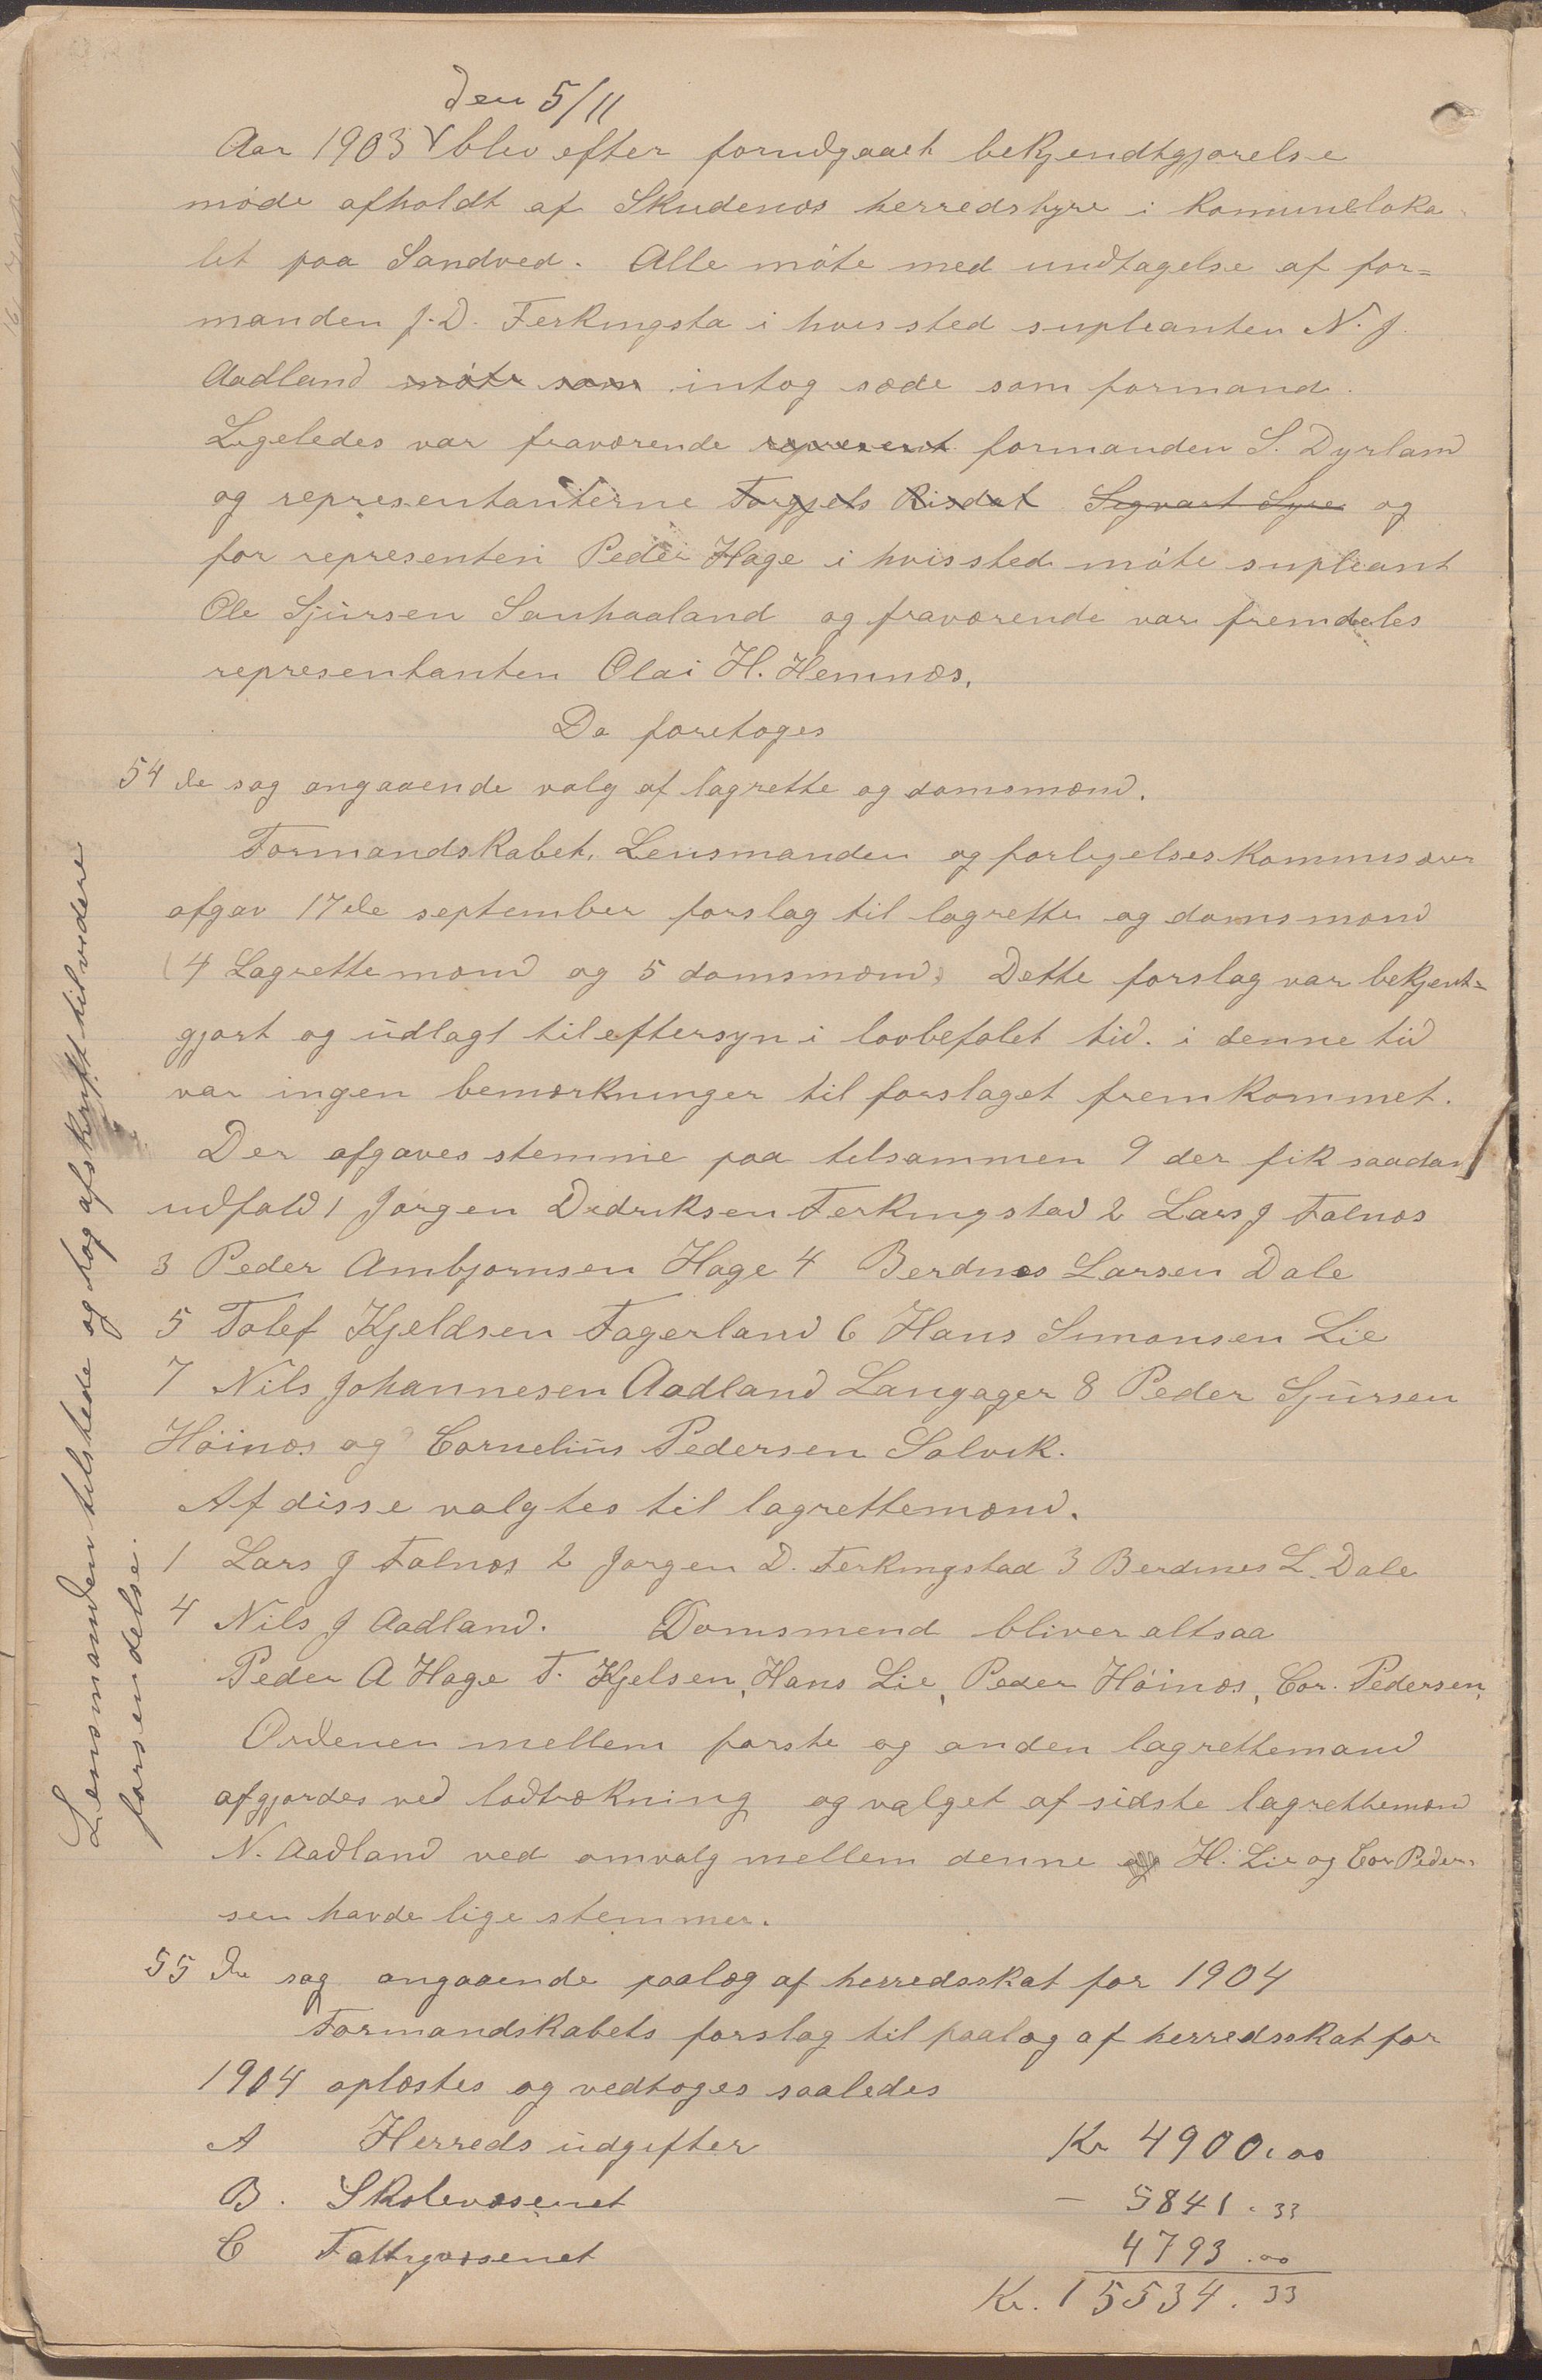 den 5/11
Aar 1903 blev efter forudgaaet bekjendtgjørelse
møde afholdt af Skudenæs herredstyre i Komuneloka
let paa Sandved. Alle møte med undtagelse af for=
manden J. D. Ferkingsta i hvis sted supleanten N. J.
Aadland møte som intog sæde som formand.
Ligeledes var fraværende represent formanden S. Dyrland
og representanterne Torgjels Risdal Sigvart Syre og
for representen Peder Hage i hvis sted møte supleant
Ole Sjursen Sanhaaland og fraværende var fremdeles
representanten Olai H. Hemnæs.
Da foretoges
54 de sag angaaende valg af lagrette og domsmænd.
Formandskabet, Lensmanden og forligelseskommisær
afgav 17de september forslag til lagrette og domsmænd
(4 Lagrettemænd og 5 domsmænd) Dette forslag var bekjent=
gjort og udlagt til eftersyn i lovbefalet tid. i denne tid
var ingen bemærkninger til forslaget fremkommet.
Der afgaves stemme paa tilsammen 9 der fik saadan
udfald 1 Jørgen Didriksen Ferkingstad 2 Lars J Falnæs
3 Peder Ambjørnsen Hage 4 Berdines Larsen Dale
5 Tolef Kjeldsen Fagerland 6 Hans Simonsen Lie
7 Nils Johannesen Aadland Langager 8 Peder Sjursen
Høinæs og Cornelius Pedersen Solvik.
Af disse valgtes til lagrettemænd.
1 Lars J Falnæs 2 Jørgen D. Ferkingstad 3 Berdines L. Dale
4 Nils J Aadland. Domsmend bliver altsaa
Peder A Hage T. Kjelsen, Hans Lie, Peder Høinæs, Cor. Pedersen,
Ordenen mellem første og anden lagrettemand
afgjordes ved lodtrækning og valget af sidste lagrettemænd
N. Aadland ved omvalg mellem denne og H. Lie og Cor Peder-
sen havde lige stemmer.
55 de sag angaaende paalæg af herredsskat for 1904
Formandskabets forslag til paalæg af herredsskat for
1904 oplæstes og vedtoges saaledes
A Herreds udgifter Kr 4900,00
B. Skolevæsenet – 5841.33
C Fattigvæsenet 4793.00
Kr. 15534.33
Lensmanden tilstede og tog afskrift til videre
forsendelse.